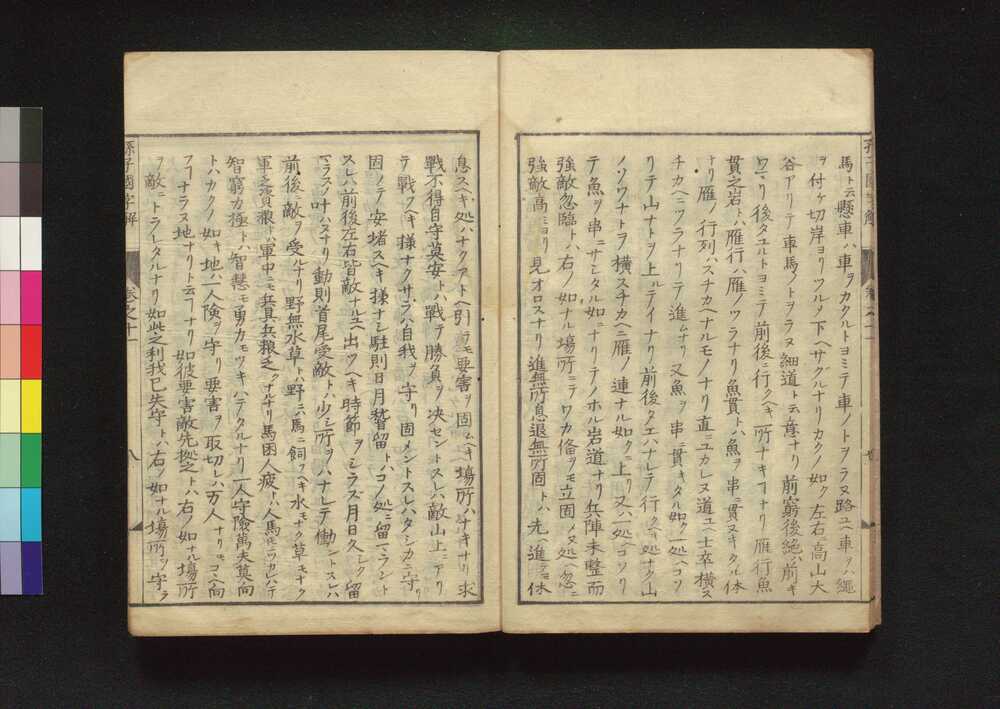 馬ト云懸車ハ車ヲカクルトヨミテ車ノトヲラヌ路ユヘ車ヲハ繩
ヲ付ケ切岸ヨリツルノ下ヘサグルナリカクノ如ク左右ニ高山大
谷アリテ車馬ノトヲラヌ細道ト云ル意ナリ前窮後絶ハ前キ
ワマリ後タユルトヨミテ前後ニ行クヘキ所ナキヿナリ雁行魚
貫之岩トハ雁行ハ雁ノツラナリ魚貫トハ魚ヲ串ニ貫ヌキタル体
ナリ雁ノ行列ハスチカヘナルモノナリ直ニユカレヌ道ユヘ士卒横ス
チカヘニツラナリテ進ムナリ又魚ヲ串ニ貫キタル如ク一処ヘコゾ
リテ山ナトヲ上ルテイナリ前後タエハナレテ行クヘキ処ナク山
ノソワナトヲ横スチカヘニ雁ノ連ナル如クニ上リ又ハ一処ヘコソリ
テ魚ヲ串ニサシタル如ニナリテノホル岩道ナリ兵陣未整而
強敵忽臨トハ右ノ如ナル場所ニテワカ備ヲモ立固メヌ処ヘ忽ニ
強敵高ミヨリ見オロスナリ進無所息退無所固トハ先ヘ進テモ休
息スヘキ処ハナクアトヘ引テモ要害ヲ固ムヘキ場所ハナキナリ求
戰不得自守莫安トハ戰テ勝負ヲ决セントスレハ敵山上ニアリ
テ戰フヘキ様ナクサラハ自我ヲ守リ固メントスレハタシカニ守リ
固ノテ安堵スヘキ様ナシ駐則日月稽留トハコノ処ニ留ラント
スレハ前後左右皆敵ナルユヘ出ツヘキ時節ヲシラズ月日久シク留
マラスノ叶ハヌナリ動則首尾受敵トハ少シ所ヲハナレテ働ントスレハ
前後ニ敵ヲ受ルナリ野無水草トハ野ニハ馬ニ飼フヘキ水モナク草モナク
軍乏資粮トハ軍中ニモ兵具兵粮乏クナルナリ馬困人疲トハ人馬モニツカレハテ
智窮力極トハ智慧モ勇力モツキハテタルナリ一人守險萬夫莫向
トハカクノ如キ地ハ一人険ヲ守リ要害ヲ取切レハ万人ナリモコヘ向
フヿナラヌ地ナリト云フヿナリ如彼要害敵先據之トハ右ノ如ナル場所
ヲ敵ニトラレタルナリ如此之利我已失守トハ右ノ如ナル塲所ヲ守ラ
孫子國字解
卷之十一
八